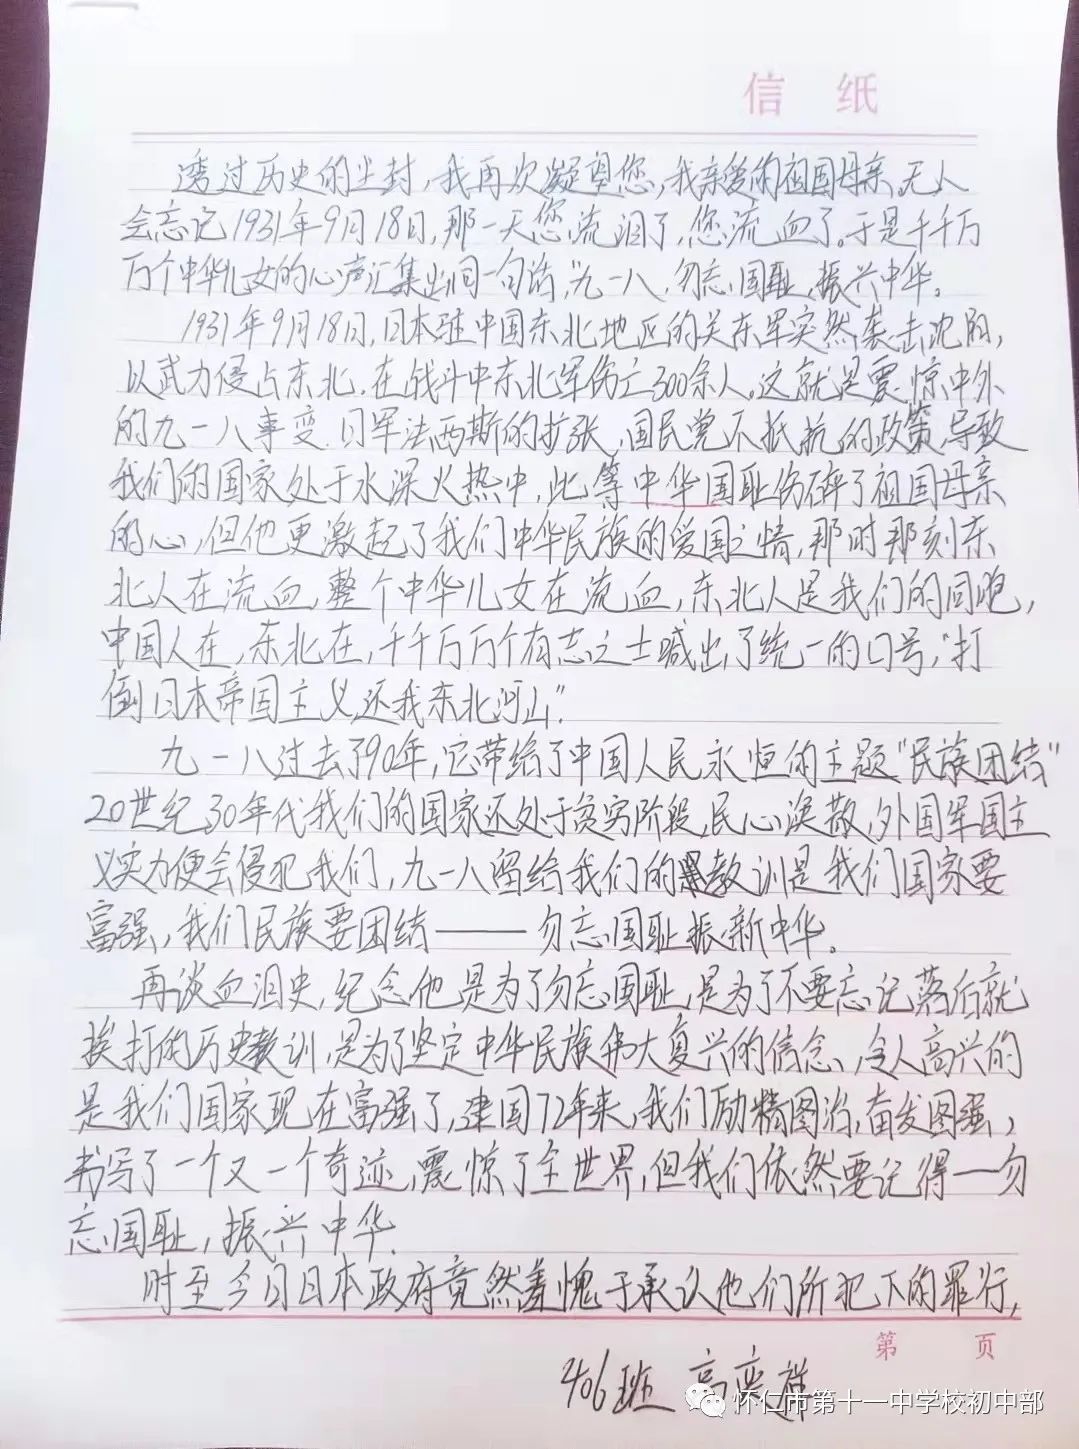 信 纸
透过历史的尘封，我再次凝望您，我亲爱的祖国母亲，无人
会忘记1931年9月18日，那一天您流泪了，您流血了。于是千千万
万个中华儿女的心声汇集出同一句话，"九一八，勿忘国耻，振兴中华。
1931年9月18日，日本驻中国东北地区的关东军突然袭击沈阳，
以武力侵占东北．在战斗中东北军伤亡300余人。这就是震惊中外
的九一八事变．日军法西斯的扩张，国民党不抵抗的政策，导致
我们的国家处于水深火热中，此等中华国耻伤碎了祖国母亲
的心，但他更激起了我们中华民族的爱国之情，那时那刻东
北人在流血，整个中华儿女在流血，东北人是我们的同胞，
中国人在，东北在，千千万万个有志之士喊出了统一的口号，"打
倒日本帝国主义，还我东北河山"．
九一八过去了90年，它带给了中国人民永恒的主题"民族团结"
20世纪30年代我们的国家还处于贫穷阶段，民心涣散，外国军国主
义实力便会侵犯我们，九一八留给我们的教训是我们国家要
富强，我们民族要团结——勿忘国耻振新中华。
再谈血泪史，纪念他是为了勿忘国耻，是为了不要忘记落后就
挨打的历史教训，是为了坚定中华民族伟大复兴的信念、令人高兴的
是我们国家现在富强了，建国72年来，我们励精图治，奋发图强，
书写了一个又一个奇迹，震惊了全世界，但我们依然要记得—勿
忘国耻，振兴中华．
时至今日日本政府竟然羞愧于承认他们所犯下的罪行，
第 页
406班 高奕祥
怀仁市第十一中学校初中部